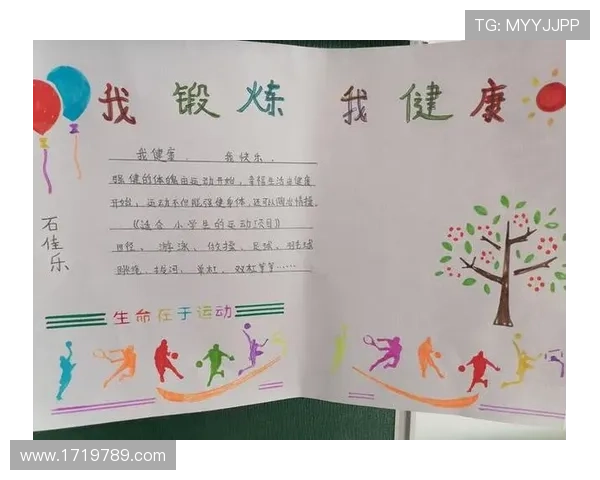 TG: MYYJJPP
我 锻 炼 我 健 康
我健康、我快乐、
强健的体魄由运动开始，幸福生活由健康
开始，运动不但能强健身体，还可以陶冶情操。
《适合小学生的运动项目》
田径、游泳、做操、足球、羽毛球
跳绳、拔河、单杠、双杠等等……
石佳乐
生命在于运动
www.1719789.com